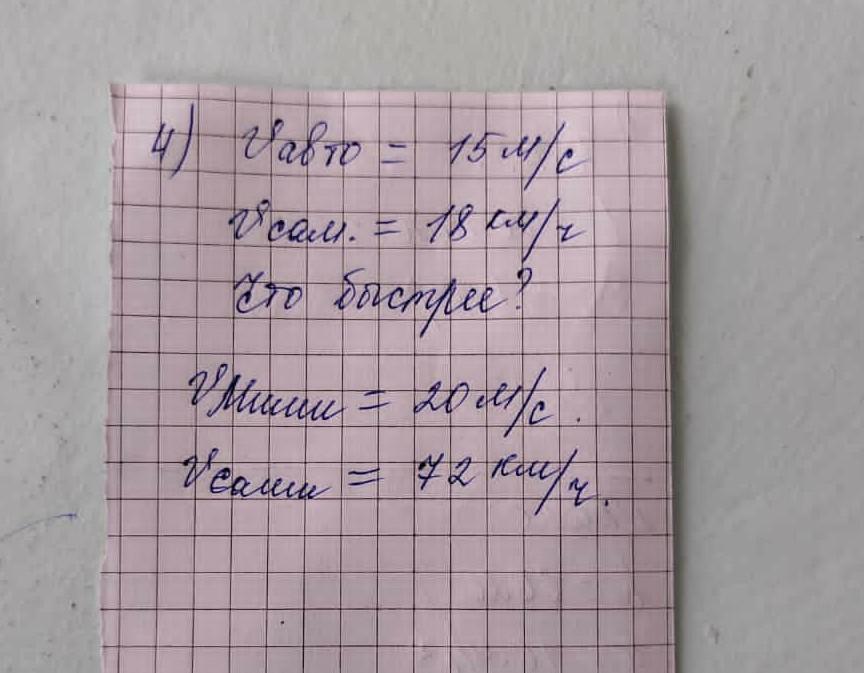 4) Vавто = 15 м/с
Vсам. = 18 км/ч
Что быстрее?
Vмиши = 20 м/с.
Vсаши = 72 км/ч.